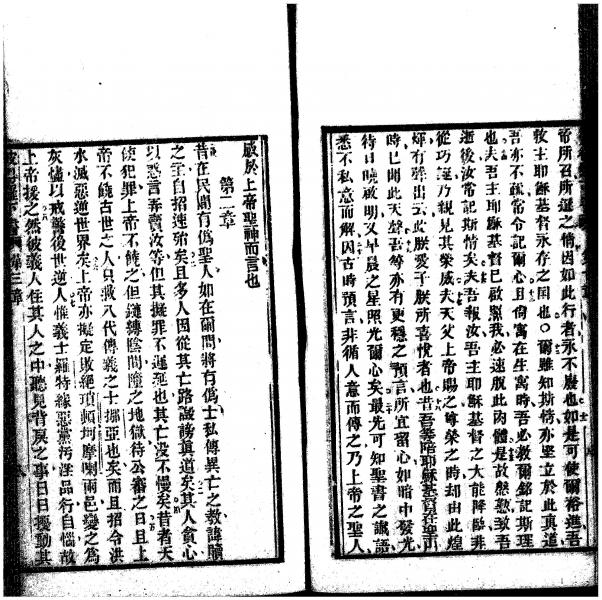 帝所召所選之情因如此行者永不廢也如是可使爾裕進吾
救主耶穌基督永存之国也〇爾雖知斯情亦堅立於此真道
吾亦不疏常令記爾心且倘寓在生寓時吾必教爾銘記斯理
也夫吾主耶穌基督已啟照我必速脫此肉體是故慇懃致吾
逝後汝常記斯情矣夫吾報汝吾主耶穌基督之大能降臨非
從巧謊乃親見其榮威夫天父上帝賜之尊榮之時却由此煌
輝有聲出云此朕愛子朕所喜悅者也昔吾等陪耶穌基督在聖山
時已聞此天聲吾等亦有更穩之預言所宜畱心如暗中發光
待日曉啟明又早晨之星照光爾心矣最先可知聖書之讖語
悉不私意而解因古時預言非循人意而傳之乃上帝之聖人
感於上帝聖神而言也
第二章
昔在民間有偽聖人如在爾間將有偽士私傳異亡之教諱贖
之主自招速殆矣且多人因從其亡路譭謗真道矣其人貪心
以惡言弄賣汝等但其擬罪不遲延也其亡没不慢矣昔者天
使犯罪上帝不饒之但鏈轉陰間瞳之地獄待公審之日且上
帝不饒古世之人只救八代傳義之士挪亞也矣而且招令洪
水滅惡逆世界矣上帝亦擬定敗絕瑣頓坷摩喇兩邑變之為
灰燼以戒警後世逆人惟義士羅特緣惡黨污淫品行自惱故
上帝援之然彼義人住其人之中聽見背戾之事日日擾動其